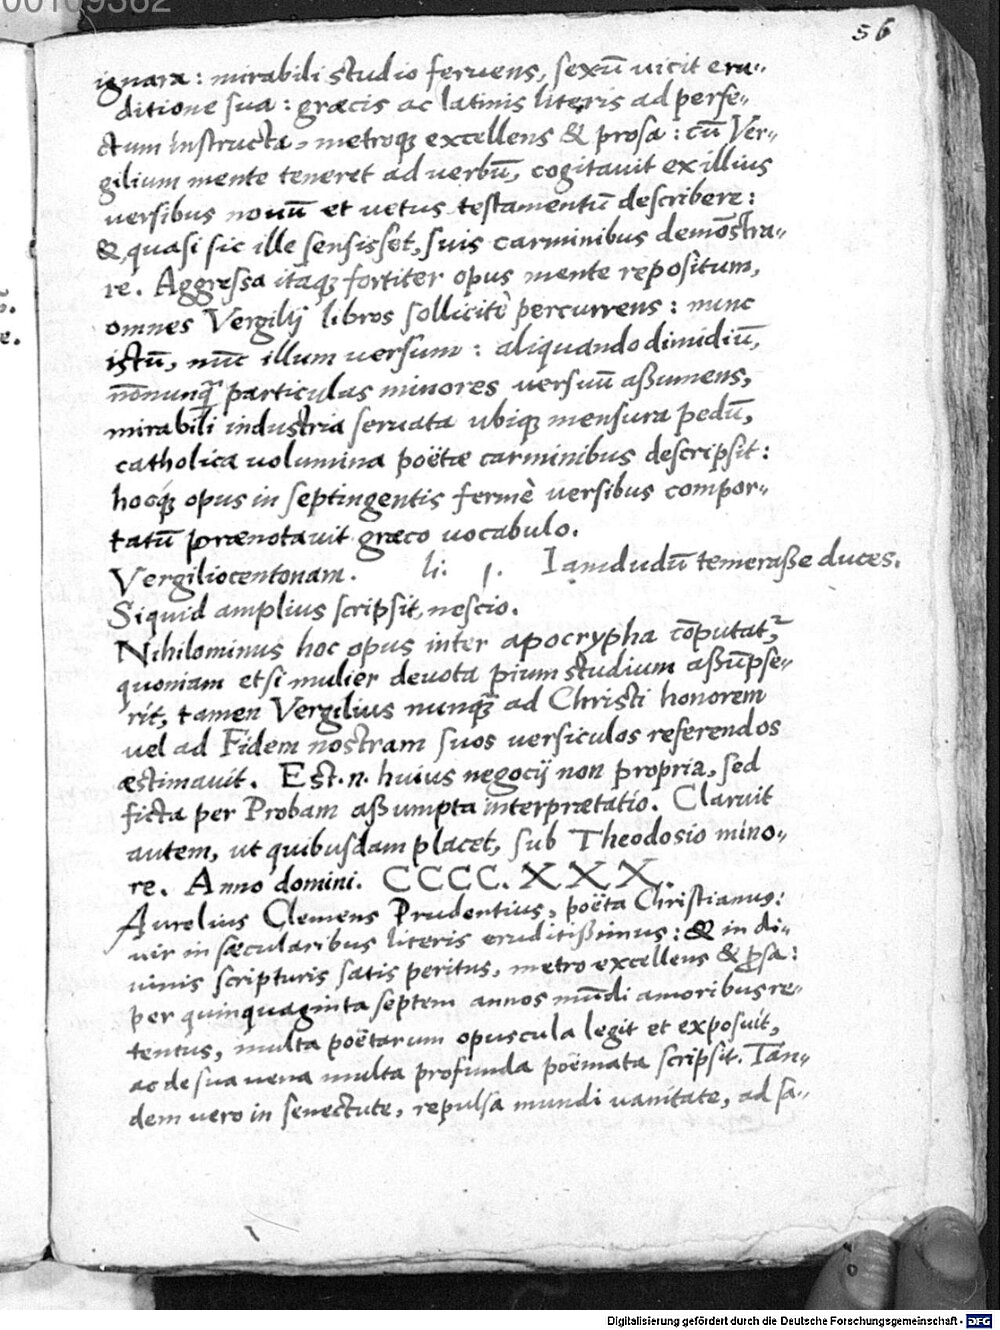 00109362
56
ignara: mirabili studio feruens, sexū uicit eru-
ditione sua: græcis ac latinis literis ad perfe-
ctum instructa, metroq; excellens & prosa: cū Ver-
gilium mente teneret ad verbū, cogitauit ex illius
versibus nouū et vetus testamentū describere:
& quasi sic ille sensisset, suis carminibus demōstra-
re. Aggressa itaq; fortiter opus mente repositum,
omnes Vergilij libros sollicitè percurrens: nunc
istū, nūc illum versum: aliquando dimidiū,
nōnunq̄ particulas minores versuū aßumens,
mirabili industria seruata ubiq; mensura pedū,
catholica uolumina poëtæ carminibus descripsit:
hocq́; opus in septingentis fermè versibus compor-
tatū prænotauit græco uocabulo.
Vergiliocentonam. li. 1. Iamdudū temeraße duces.
Siquid amplius scripsit, nescio.
Nihilominus hoc opus inter apocrypha cōputat᷑,
quoniam etsi mulier deuota pium studium aßūpse-
rit, tamen Vergilius nunq̄ ad Christi honorem
uel ad Fidem nostram suos uersiculos referendos
æstimauit. Est.n. huius negocij non propria, sed
ficta per Probam aßumpta interprætatio. Claruit
autem, ut quibusdam placet, sub Theodosio mino-
re. Anno domini. CCCC.XXX.
Aurelius Clemens Prudentius, poëta Christianus:
uir in sæcularibus literis eruditißimus: & in di-
uinis scripturis satis peritus, metro excellens & ꝓsa:
per quinquaginta septem annos mūdi amoribus re-
tentus, multa poëtarum opuscula legit et exposuit,
ac de sua uena multa profunda poëmata scripsit. Tan-
dem uero in senectute, repulsa mundi uanitate, ad sa-
Digitalisierung gefördert durch die Deutsche Forschungsgemeinschaft - DFG